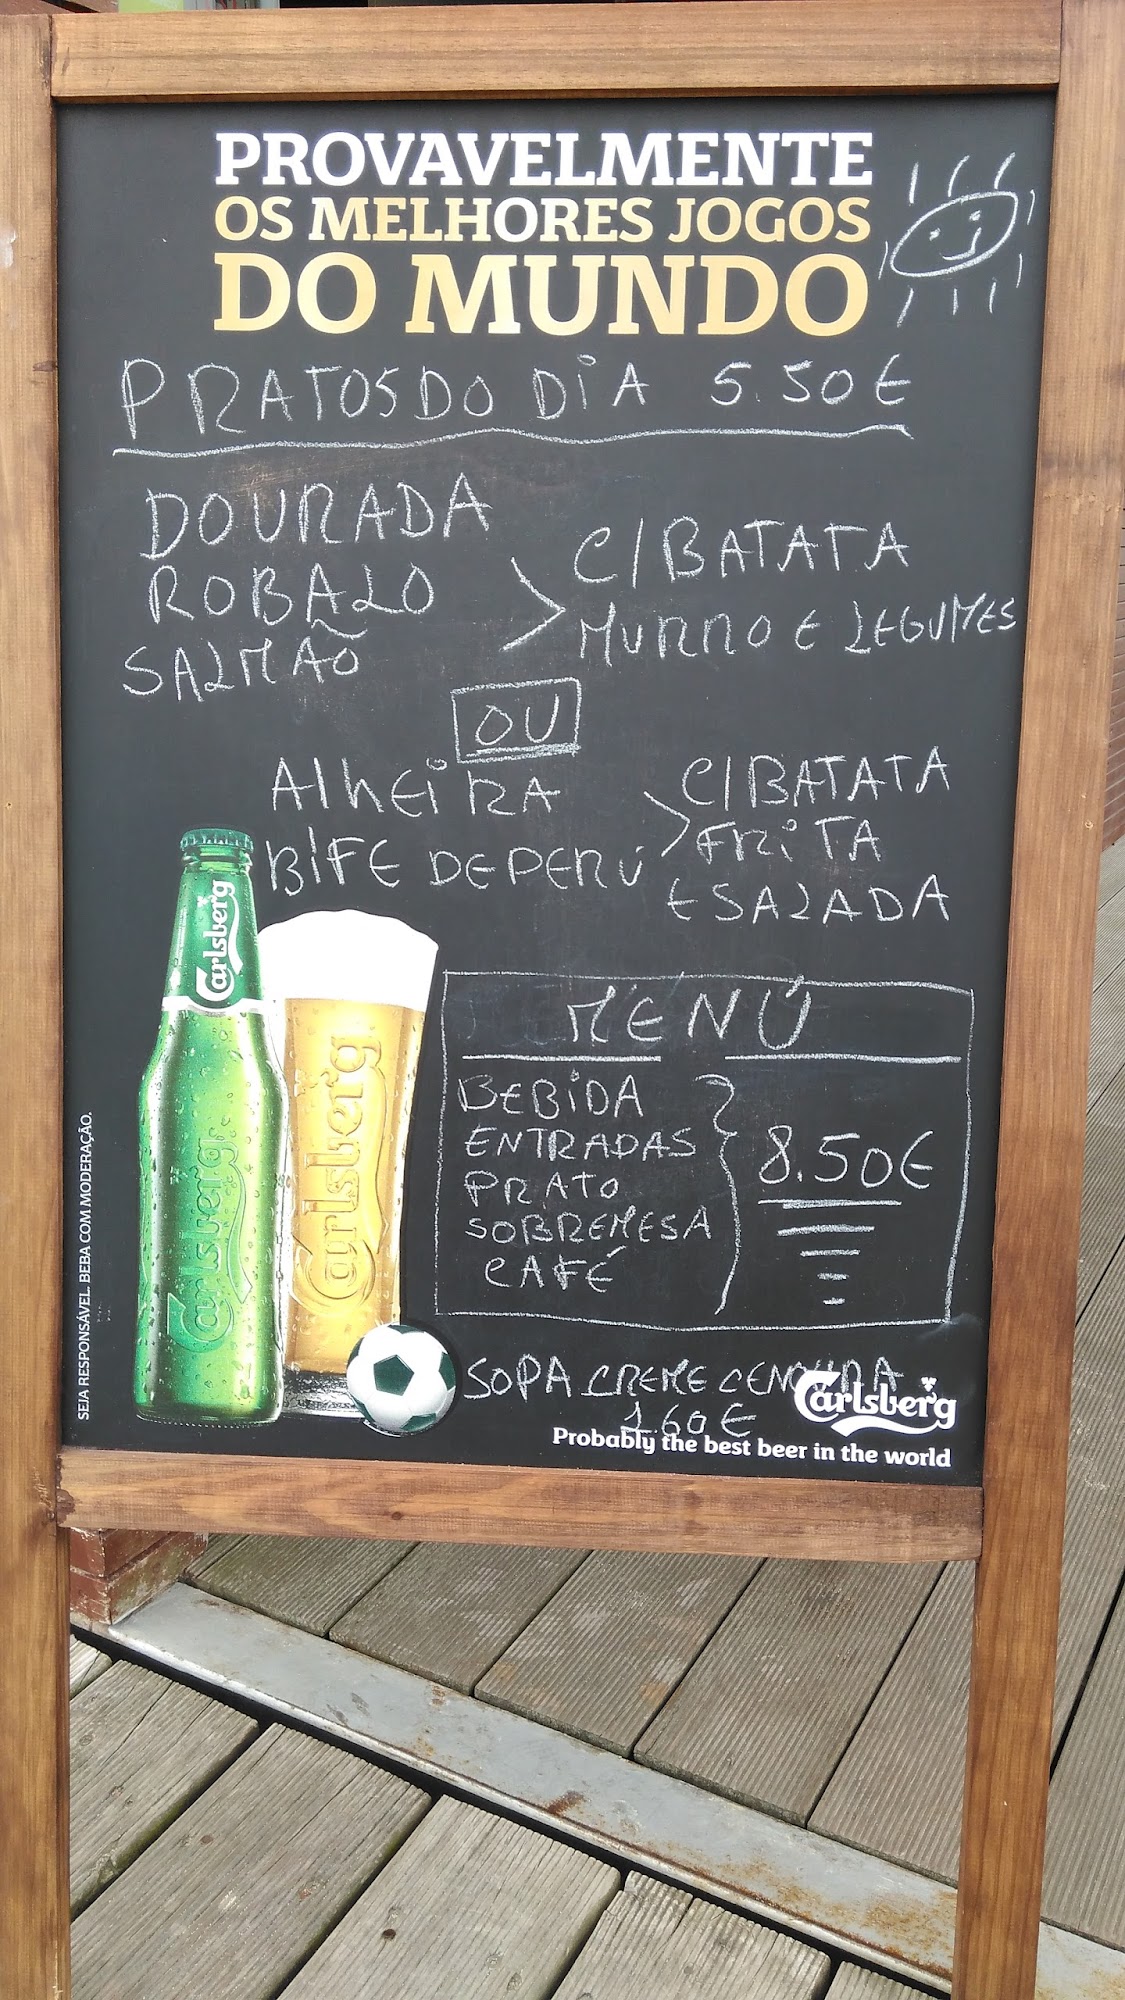 PROVAVELMENTE
OS MELHORES JOGOS
DO MUNDO
PRATOS DO DIA 5.50€
DOURADA
ROBALO
SALMÃO
C/BATATA
MURRO E LEGUMES
OU
AlhEiRA
BIFE DE PERÚ
C/BATATA
FRiTA
E SALADA
MENÚ
BEBiDA
ENTRADAS
PRATO
SOBREMESA
CAFÉ
8.50€
SOPA CREME CENOURA
1.60€
Carlsberg
Probably the best beer in the world
Carlsberg
Carlsberg
Carlsberg
SEJA RESPONSÁVEL. BEBA COM MODERAÇÃO.